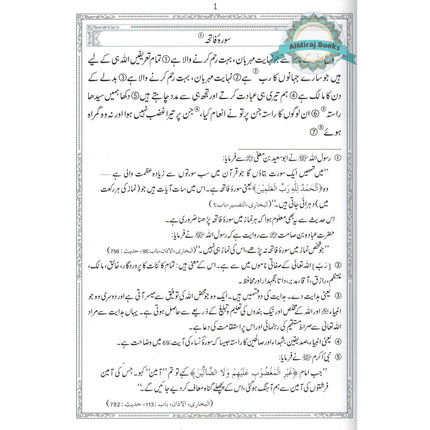 1
AlMiraj Books
سورۃ فاتحہ ①
نہایت مہربان، بہت رحم کرنے والا ہے ① تمام تعریفیں اللہ ہی کے لیے
ہیں جو سارے جہانوں کا رب ② ہے ② نہایت مہربان، بہت رحم کرنے والا ہے ③ بدلے کے
دن کا مالک ہے ④ ہم تیری ہی عبادت کرتے اور تجھ ہی سے مدد چاہتے ہیں ⑤ دکھا ہمیں سیدھا
راستہ ③ ⑥ ان لوگوں کا راستہ جن پر تو نے انعام کیا، ④ جن پر تیرا غضب نہیں ہوا اور نہ وہ گمراہ
ہوئے ⑤ ⑦
① رسول اللہ ﷺ نے ابو سعید بن معلیٰ سے فرمایا:
”میں تمھیں ایک سورت بتاؤں گا جو قرآن میں سب سورتوں سے زیادہ عظمت والی ہے
وہ ﴿اَلْحَمْدُ لِلّٰهِ رَبِّ الْعٰلَمِيْنَ﴾ یعنی سورۃ فاتحہ ہے۔ اس میں سات آیات ہیں جو (نماز کی ہر رکعت
میں) دہرائی جاتی ہیں۔“
اس حدیث سے یہ بھی معلوم ہوا کہ ہر نماز میں سورۃ فاتحہ پڑھنا ضروری ہے۔
حضرت عبادہ بن صامت سے روایت ہے کہ رسول اللہ ﷺ نے فرمایا:
”جو شخص نماز میں سورۃ فاتحہ نہ پڑھے، اس کی نماز ہی نہیں۔“ (البخاری، الاذان، باب: 95، حدیث: 756)
② [رب] اللہ تعالیٰ کے صفاتی ناموں میں سے ہے۔ اس کے معنی ہیں: تمام کائنات کا پروردگار، خالق، مالک،
منتظم، رازق، آقا، مدبر،
③ یعنی ہدایت دے۔ ہدایت کی دو قسمیں ہیں۔ ایک وہ جو محض اللہ کی توفیق سے میسر آتی ہے اور دوسری وہ جو
انبیاء اور اللہ کے مخلص اور نیک بندوں کی تعلیم و تبلیغ کے ذریعے سے حاصل ہوتی ہے۔ یہاں ہدایت سے مراد
اللہ تعالیٰ سے صراط مستقیم کی رہنمائی اور اس پر استقامت کی دعا ہے۔
④ یعنی انبیاء، صدیقین، شہداء اور صالحین کا راستہ جیسا کہ سورۃ نساء کی آیت میں وضاحت ہے۔
⑤ نبی اکرم ﷺ نے فرمایا:
”جب امام ﴿غَيْرِ الْمَغْضُوْبِ عَلَيْهِمْ وَلَا الضَّآلِّيْنَ﴾ کہے تو تم ”آمین“ کہو۔ جس کی آمین
فرشتوں کی آمین سے ہم آہنگ ہو گئی، اس کے پچھلے گناہ معاف کر دیے جائیں گے۔“
(البخاری، الاذان، باب: 113، حدیث: 782)